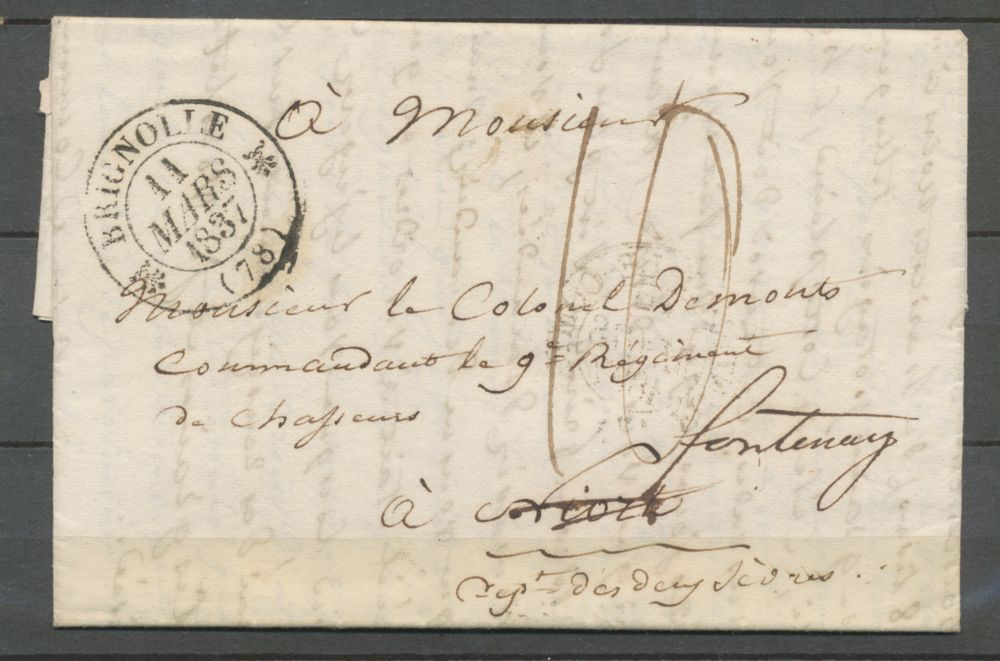 BRIGNOLLE
11
MARS
1837
(78)
à Monsieur
10
Monsieur le Colonel Demonts
Commandant le 9e Régiment
de Chasseurs
fontenay
à Niort
dept des deux Sèvres